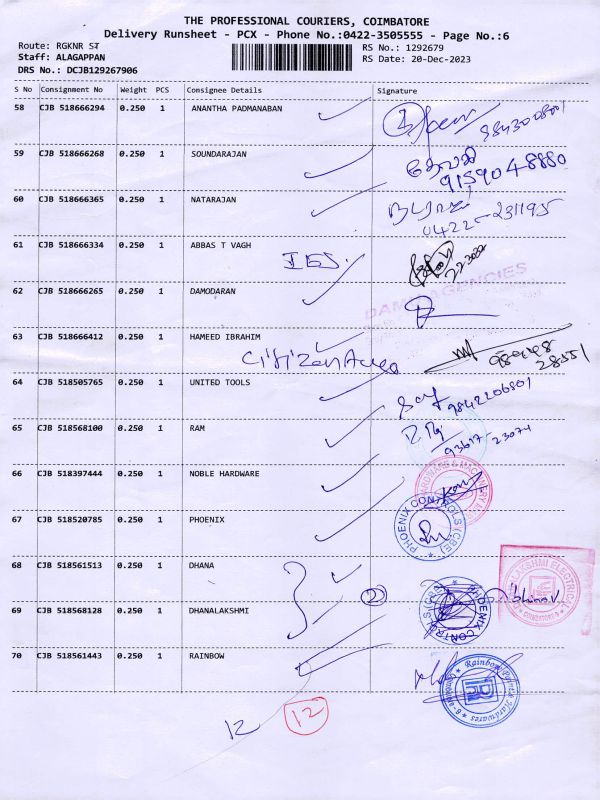 THE PROFESSIONAL COURIERS, COIMBATORE
Delivery Runsheet - PCX - Phone No.:0422-3505555 - Page No.:6
Route: RGKNR ST
RS No.: 1292679
Staff: ALAGAPPAN
RS Date: 20-Dec-2023
DRS No.: DCJB129267906
S No Consignment No Weight PCS Consignee Details Signature
58 CJB 518666294 0.250 1 ANANTHA PADMANABAN
59 CJB 518666268 0.250 1 SOUNDARAJAN
9159048880
60 CJB 518666365 0.250 1 NATARAJAN
0422-231195
61 CJB 518666334 0.250 1 ABBAS T VAGH
62 CJB 518666265 0.250 1 DAMODARAN
AGENCIES
63 CJB 518666412 0.250 1 HAMEED IBRAHIM
28551
64 CJB 518505765 0.250 1 UNITED TOOLS
9842206801
65 CJB 518568100 0.250 1 RAM
93617-23074
66 CJB 518397444 0.250 1 NOBLE HARDWARE
HARDWARE & MACHINERY
67 CJB 518520785 0.250 1 PHOENIX
PHOENIX CONTROLS (CBE)
68 CJB 518561513 0.250 1 DHANA
LAKSHMI ELECTRICAL
COIMBATORE
69 CJB 518568128 0.250 1 DHANALAKSHMI
2
PHOENIX CONTROLS (CBE)
70 CJB 518561443 0.250 1 RAINBOW
Rainbow Paints Hardwares
12
12